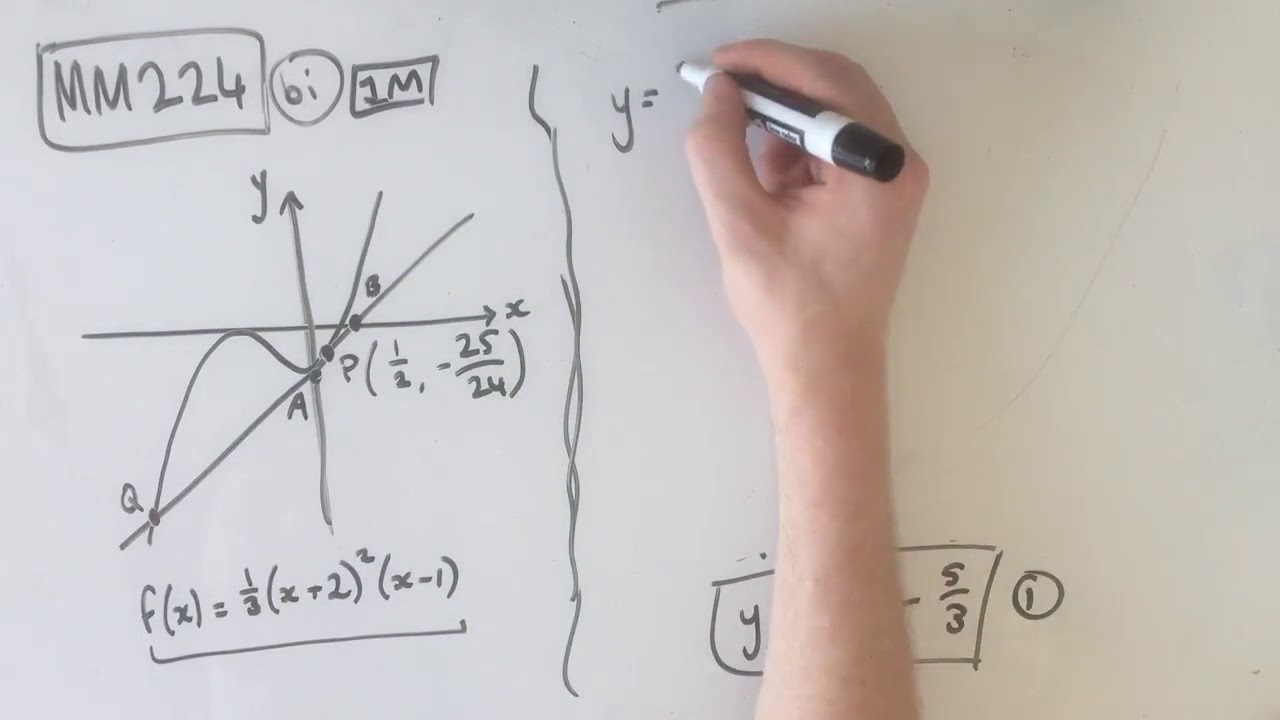 MM224 bi 1M
y
B
x
P(1/2, -25/24)
A
Q
f(x) = 1/3(x+2)²(x-1)
y =
y - 5/3 1